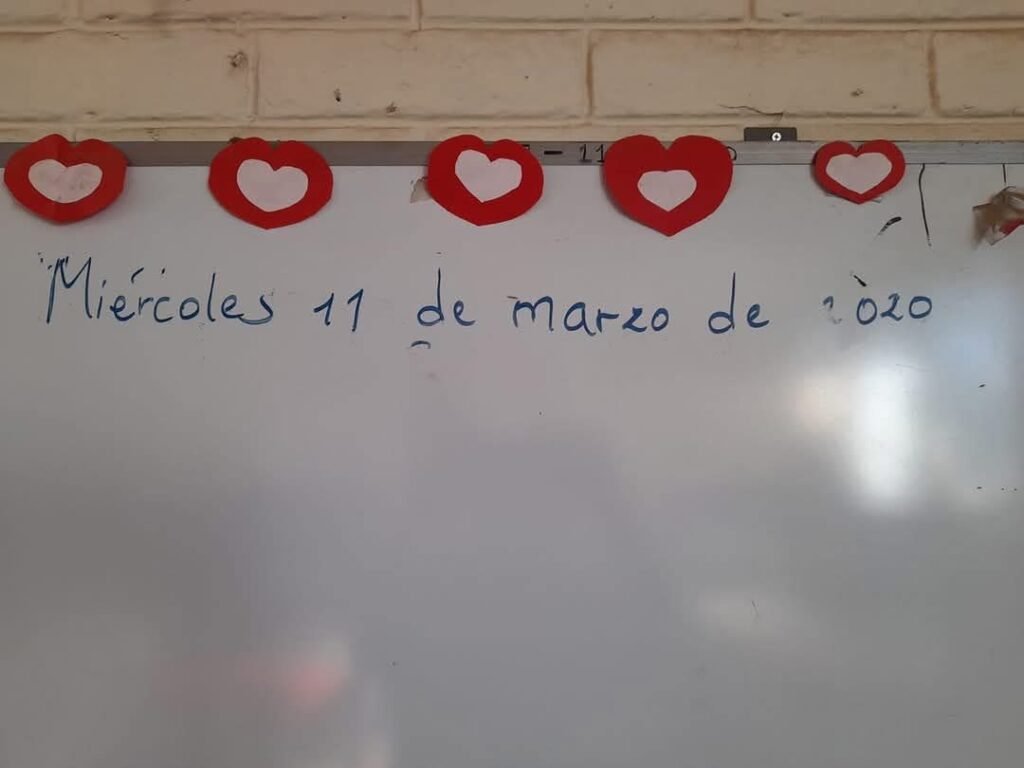 Miércoles 11 de marzo de 2020